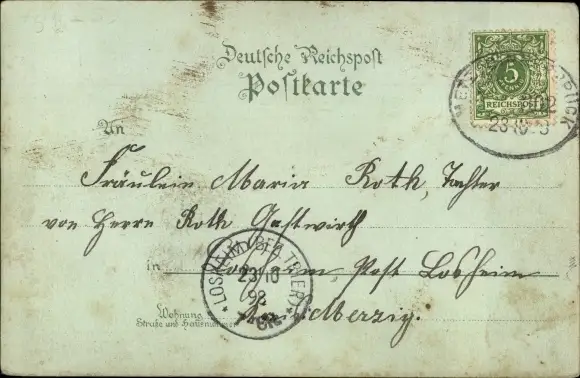 Deutsche Reichspost
Postkarte
5
REICHSPOST
23 10
An
Fräulein Maria Roth, Tochter
von Herrn Roth Gastwirth
in Post Losheim
Merzig.
LOSHEIM (BEZ. TRIER)
23 10
98
Wohnung
Straße und Hausnummer